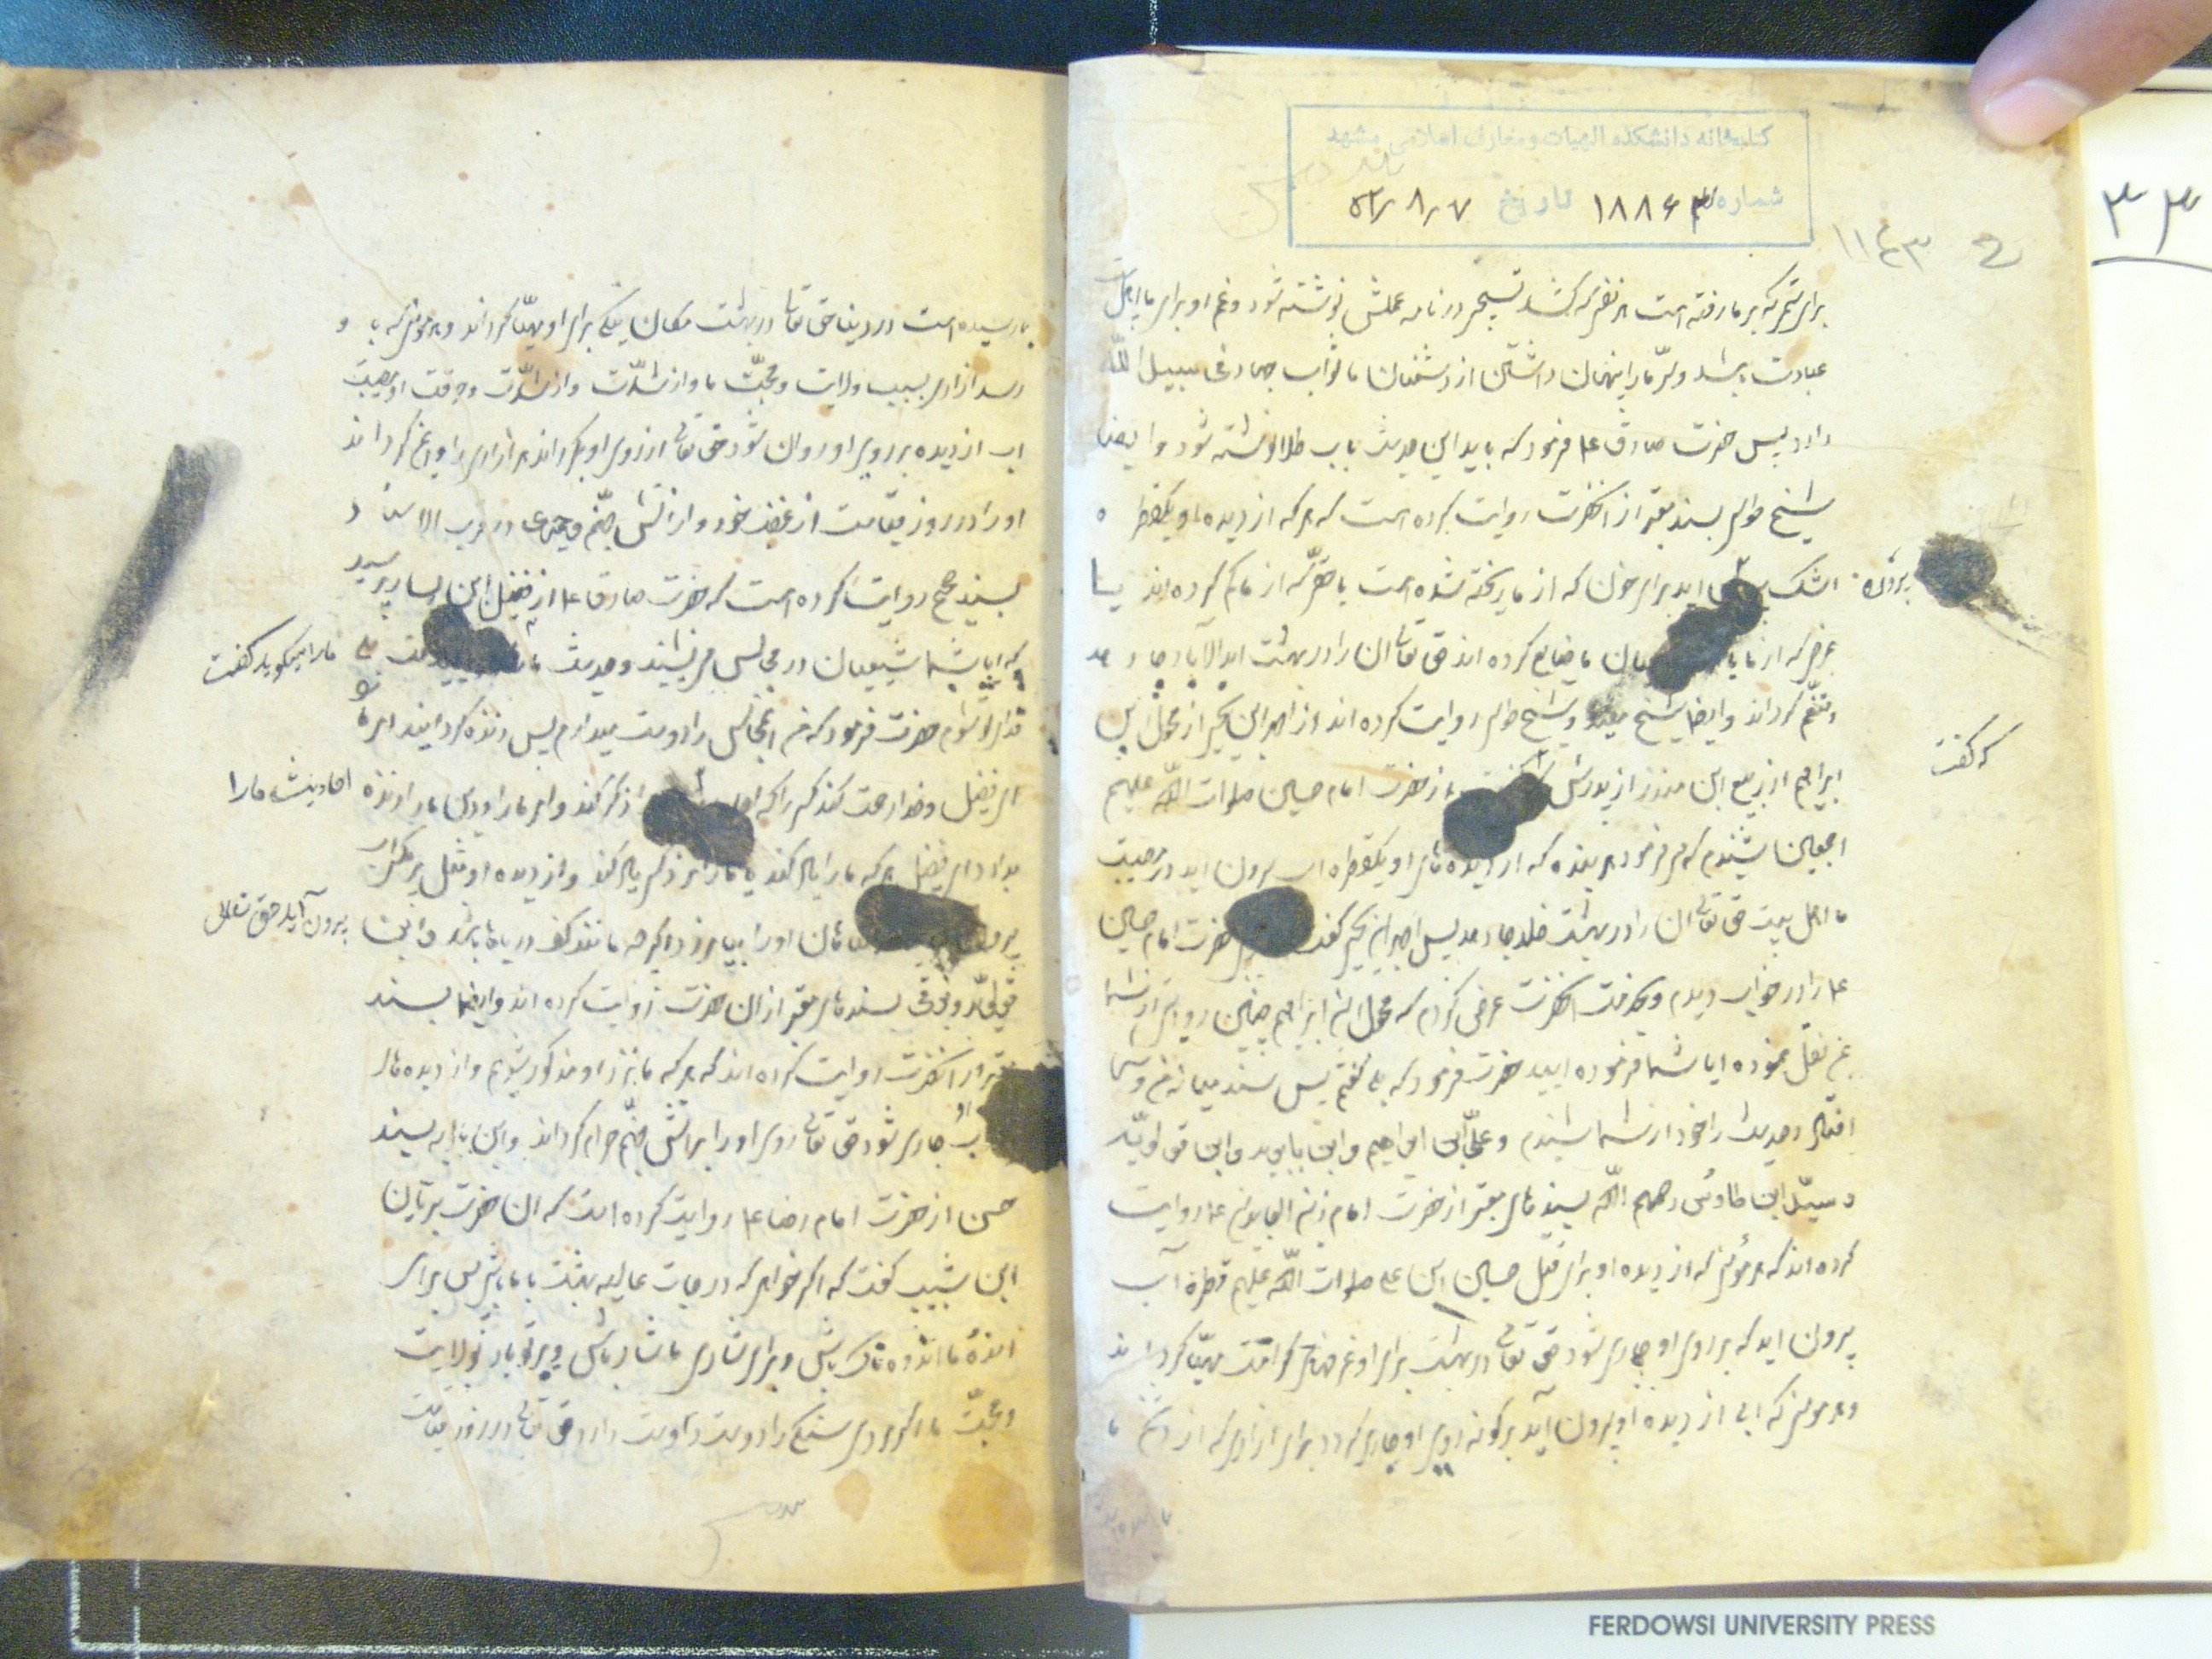 کتابخانه دانشکده الهیات و معارف اسلامی مشهد
شماره ۱۸۸۶۴ تاریخ
۳۳
برای ستمی که بر ما رفته است هر نفسی که کشد تسبیحی در نامه عملش نوشته شود و غم او برای ما اهل بیت
عبادت باشد و سرّ ما را پنهان داشتن از دشمنان ما ثواب جهاد فی سبیل اللّه
دارد پس حضرت صادق ع فرمود که باید این حدیث بآب طلا نوشته شود و ایضا
شیخ طوسی بسند معتبر از آنحضرت روایت کرده است که هر که از دیده او یکقطره
اشک اید برای خونی که از ما ریخته شده است یا حقی که از ما کم کرده اند یا
بیرون
عرضی که از ما یا ضایع کرده اند حق تعالی ان را در بهشت ابد الآباد جا دهد
و متنعّم گرداند و ایضا شیخ مفید و شیخ طوسی روایت کرده اند از احمد ابن یحیی از مخول ابن
که گفت
ابراهیم از ربیع ابن منذر از پدرش از حضرت امام حسین صلوات اللّه علیهم
اجمعین شنیدم که می فرمود هر بنده که از دیده های او یکقطره اب بیرون اید در مصیبت
ما اهل بیت حق تعالی ان را در بهشت خلد جا دهد پس احمد ابن یحیی گفت حضرت امام حسین
ع را در خواب دیدم و بخدمت آنحضرت عرض کردم که مخول ابن ابراهیم چنین روایتی از شما
بمن نقل نموده ایا شما فرموده ایید حضرت فرمود که بلی گفتم پس سند میانه من و
افتاد و حدیث را خود از شما شنیدم و علی ابن ابراهیم و ابن بابویه و ابن قولویه
و سید ابن طاوس رحمهم اللّه بسندهای معتبر از حضرت امام زین العابدین ع روایت
کرده اند که هر مؤمنی که از دیده او برای قتل حسین ابن علی صلوات اللّه علیهم قطره آب
بیرون اید که بر روی او جاری شود حق تعالی در بهشت برای او غرفهای کرامت مهیّا گرداند
و هر مومنی که ابی از دیده او بیرون آید بر گونه روی او جاری گردد برای ازاری که از دشمن ما
بما رسیده است در دنیا حق تعالی در بهشت مکان نیکی برای او مهیّا گرداند و هر مومنی که با و
رسد ازاری بسبب ولایت و محبّت ما و از شدّت و از مصیبت
اب از دیده بر روی او روان شود حق تعالی از روی او بگرداند هر ازاری را و ایمن گرداند
او را در روز قیامت از غضب خود و از اتش جهنّم و حمیری در قرب الاسناد
بسند صحیح روایت کرده است که حضرت صادق ع از فضیل ابن یسار پرسید
که ایا شما شیعیان در مجالس می نشینید و حدیث ما
ما را میگویید گفت
فدای تو شوم حضرت فرمود که من انمجالس را دوست میدارم پس زنده گردانید امر ما
ای فضیل و خدا رحمت کند کسی را که ذکر کند و امر ما را و دین ما را زنده
احادیث ما را
بدارد ای فضیل هر که ما را یاد کند یا ما را نزد کسی یاد کند و از دیده او مثل پر مگسی اب
بیرون آید حق تعالی
گناهان او را بیامرزد اگرچه مانند کف دریاها باشد و ابن
قولویه و برقی بسندهای معتبر از ان حضرت روایت کرده اند و ایضا بسند
معتبر از آنحضرت روایت کرده اند که هر که ما نزد او مذکور شویم و از دیده های
او اب جاری شود حق تعالی روی او را بر اتش جهنّم حرام گرداند و ابن بابویه بسند
حسن از حضرت امام رضا ع روایت کرده است که ان حضرت بریّان
ابن شبیب گفت که اگر خواهی که در درجات عالیه بهشت با ما باشی پس برای
اندوه ما اندوه ناک باش و برای شادی ما شاد باش و بر تو باد بولایت
و محبّت ما اگر مردی سنگی را دوست دارد حق تعالی در روز قیامت
FERDOWSI UNIVERSITY PRESS